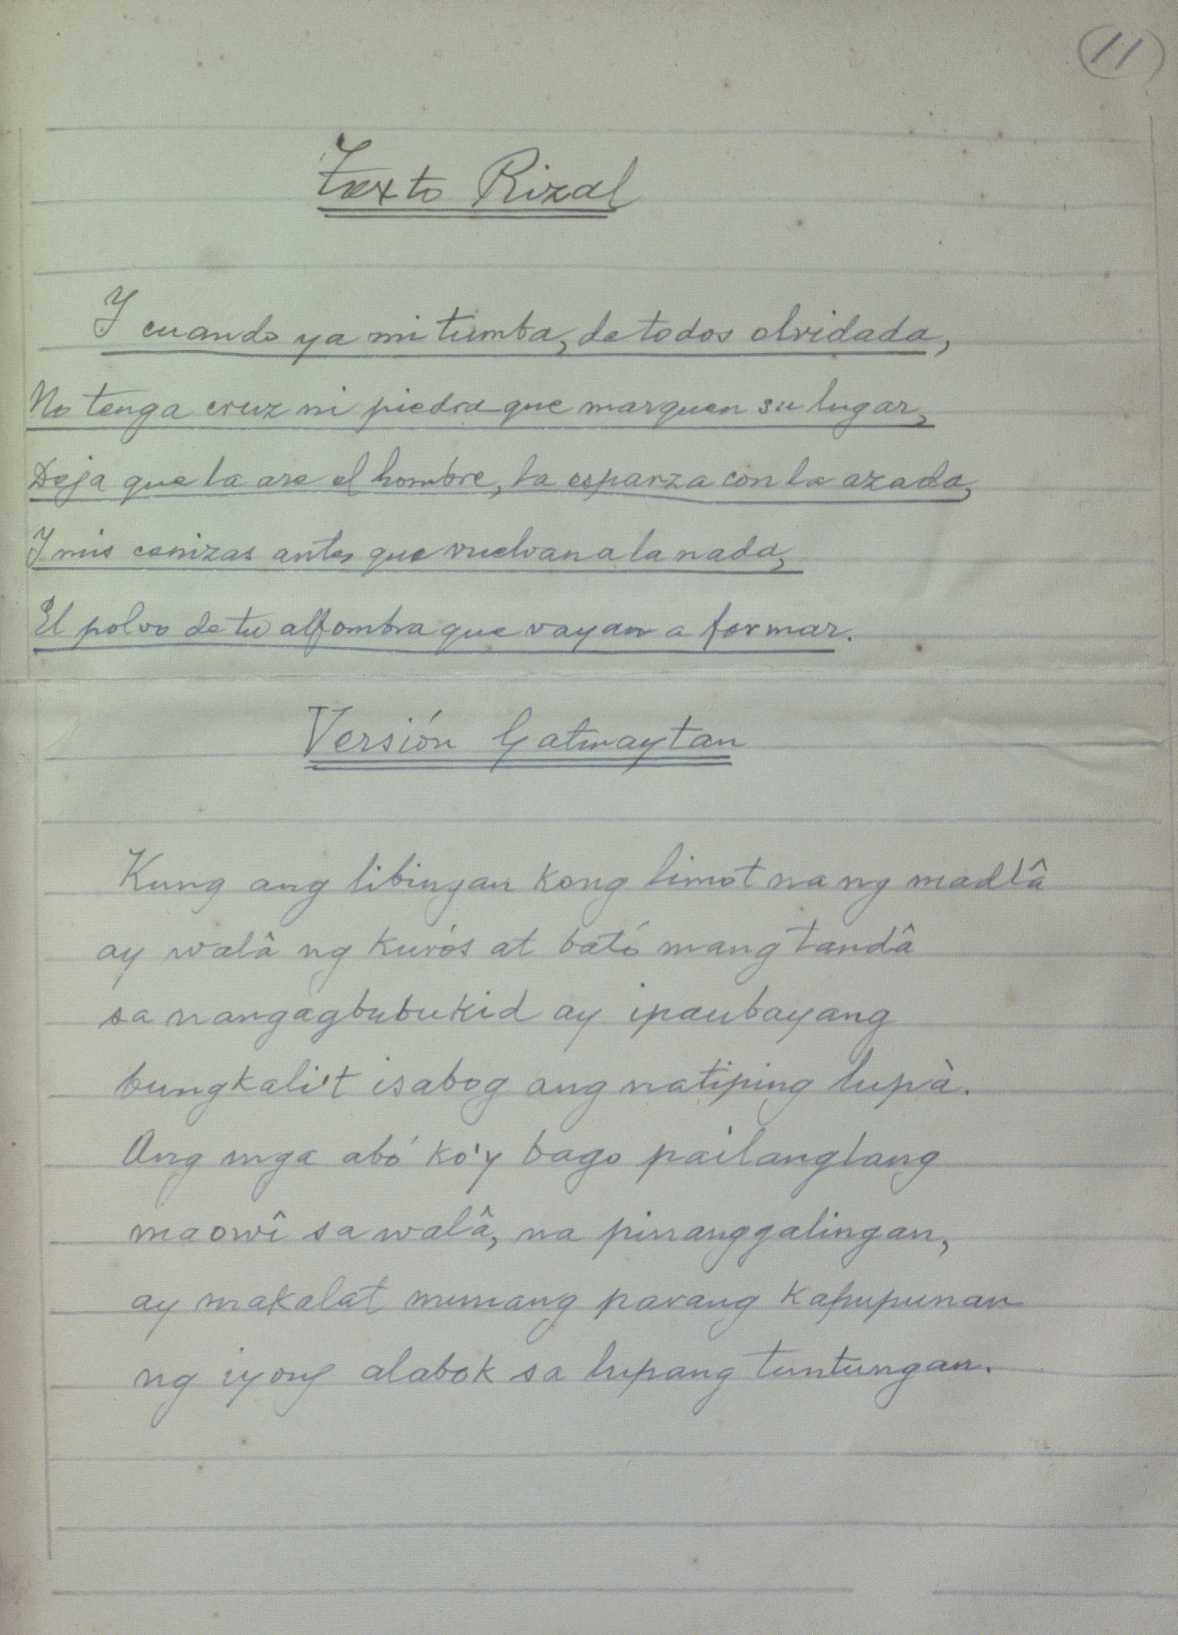 11
Texto Rizal
Y cuando ya mi tumba, de todos olvidada,
No tenga cruz ni piedra que marquen su lugar,
Deja que la are el hombre, la esparza con la azada,
Y mis cenizas antes que vuelvan a la nada,
El polvo de tu alfombra que vayan a formar.
Versión Gatmaytan
Kung ang libingan kong limot na ng madlâ
ay walâ ng kurós at bató mang tandâ
sa nangagbubukid ay ipaubayang
bungkali't isabog ang natiping lupà.
Ang mga abó ko'y bago pailanglang
maowî sa walâ, na pinanggalingan,
ay makalat munang parang kapupunan
ng iyong alabok sa lupang tuntungan.